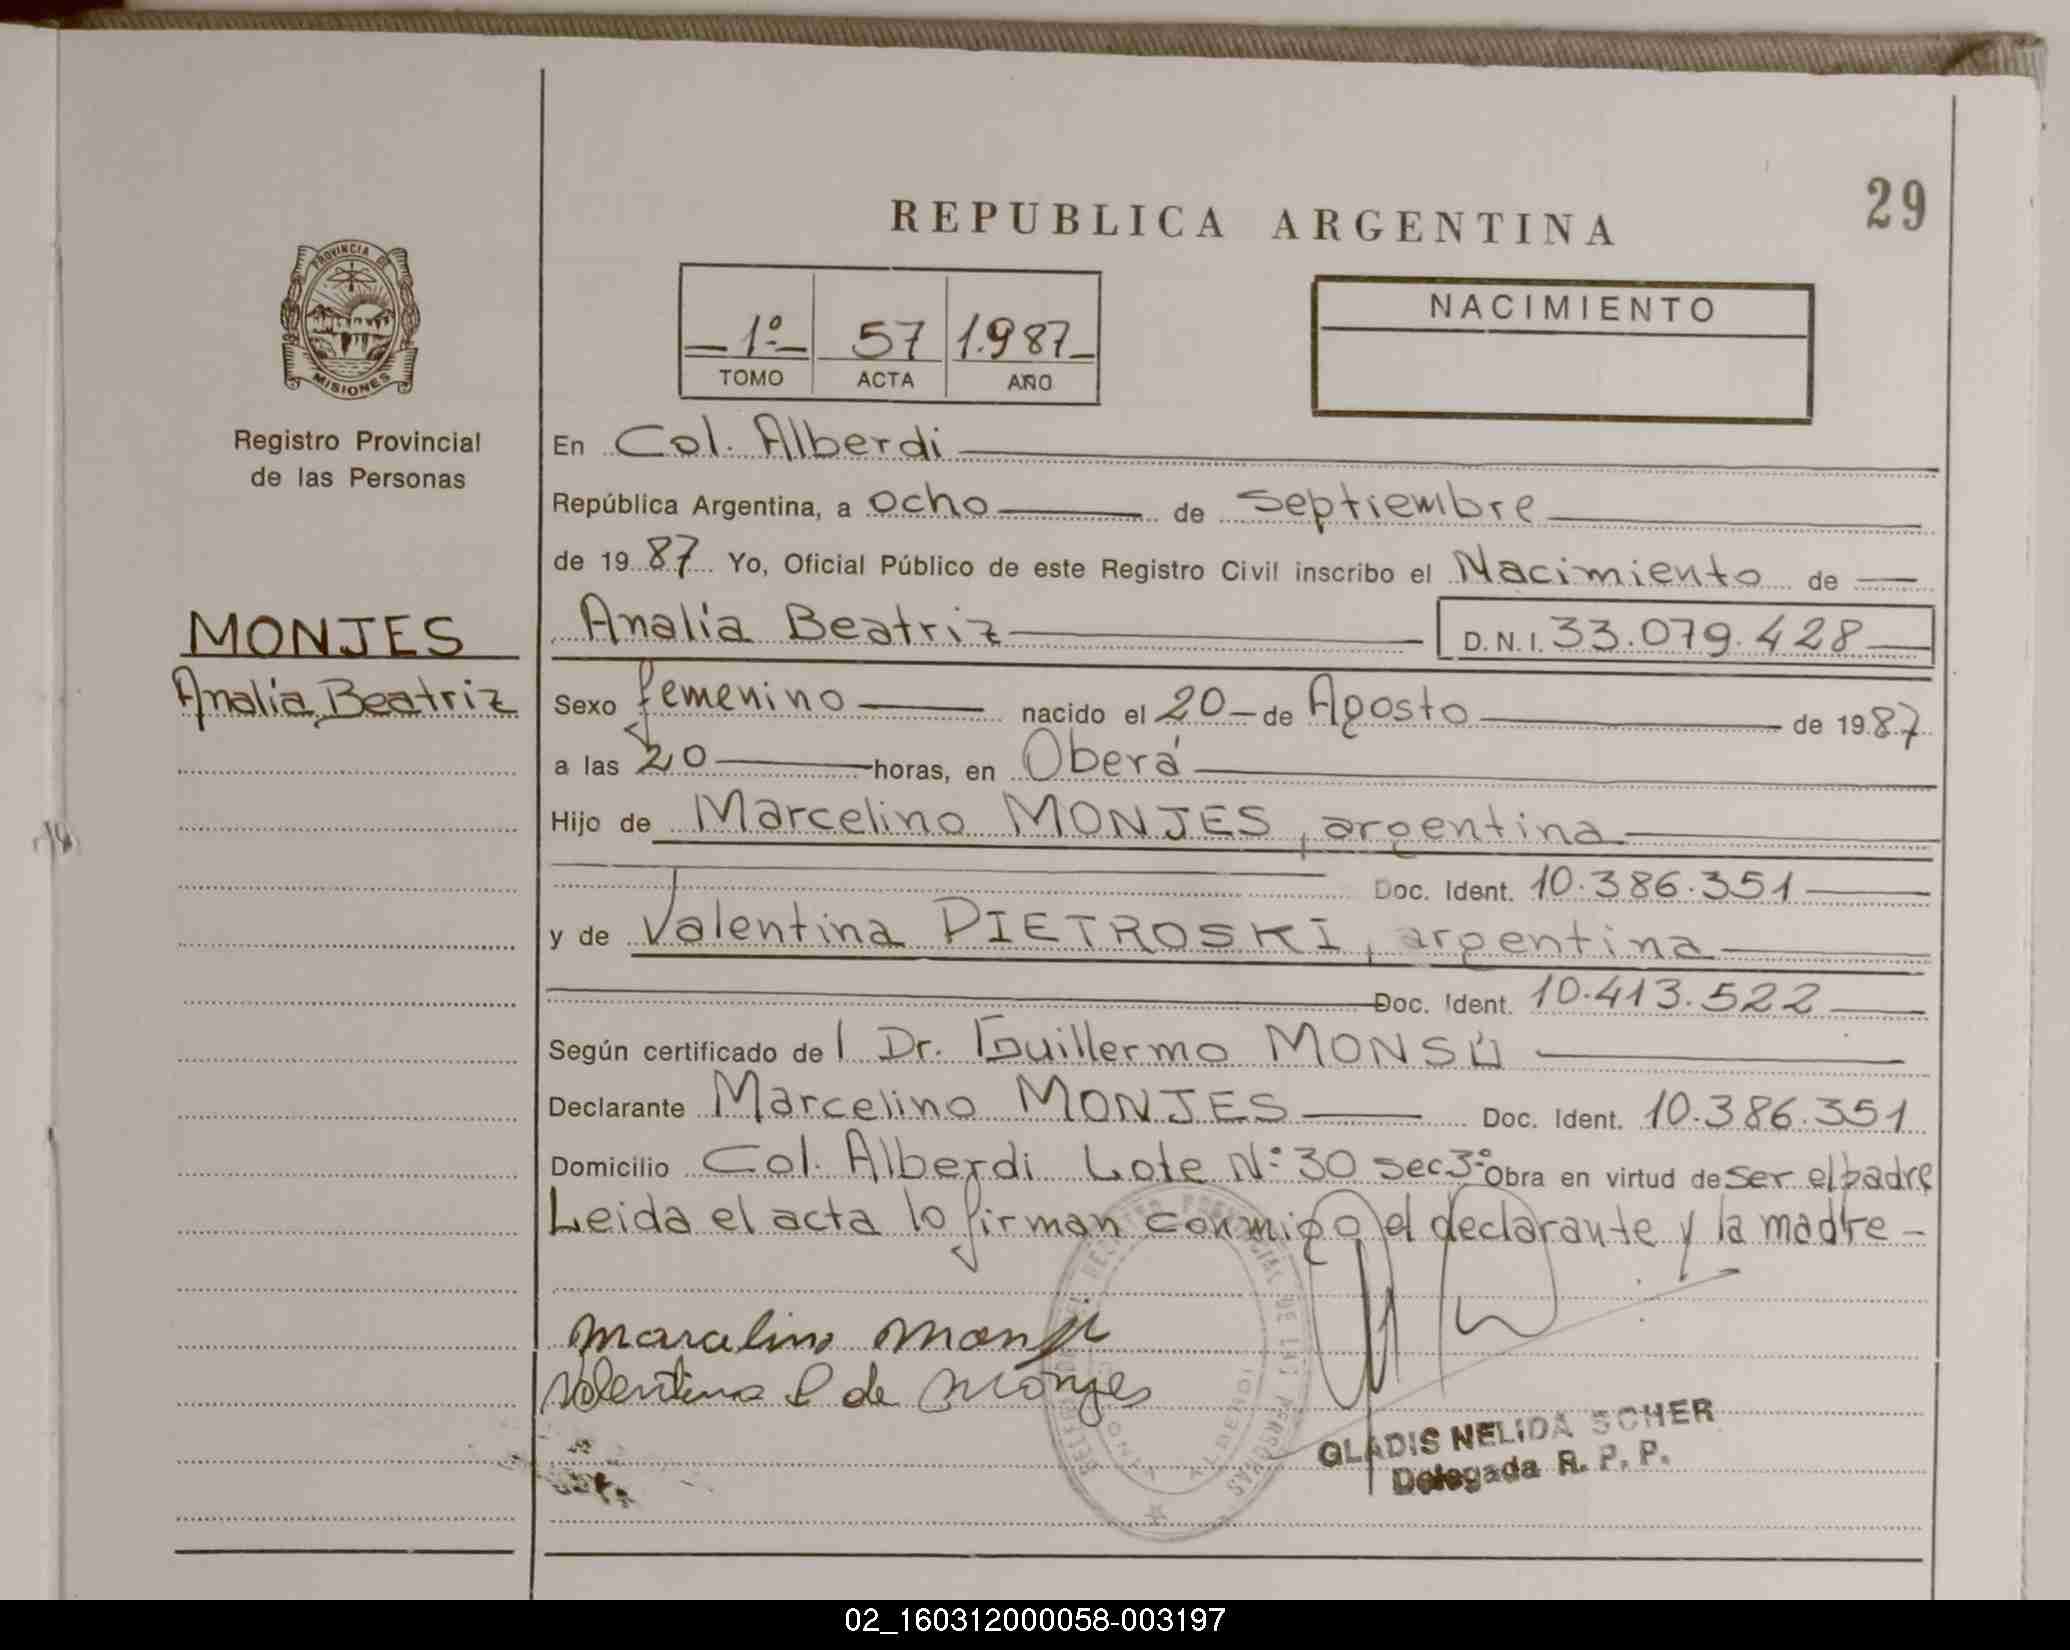 REPUBLICA ARGENTINA
29
PROVINCIA DE
MISIONES
Registro Provincial
de las Personas
1º 57 1.987
TOMO ACTA AÑO
NACIMIENTO
En Col. Alberdi
República Argentina, a ocho de septiembre
de 1987 Yo, Oficial Público de este Registro Civil inscribo el Nacimiento de
MONJES
Analia Beatriz
Analia Beatriz D.N.I. 33.079.428
Sexo femenino nacido el 20 de Agosto de 1987
a las 20 horas, en Oberá
Hijo de Marcelino MONJES, argentina
Doc. Ident. 10.386.351
y de Valentina PIETROSKI, argentina
Doc. Ident. 10.413.522
Según certificado del Dr. Guillermo MONSÚ
Declarante Marcelino MONJES Doc. Ident. 10.386.351
Domicilio Col. Alberdi Lote Nº 30 sec 3º Obra en virtud de ser el padre
Leida el acta lo firman conmigo el declarante y la madre -
Marcelino Monje
Valentina P de Monjes
GLADIS NELIDA SCHER
Delegada R. P. P.
02_160312000058-003197